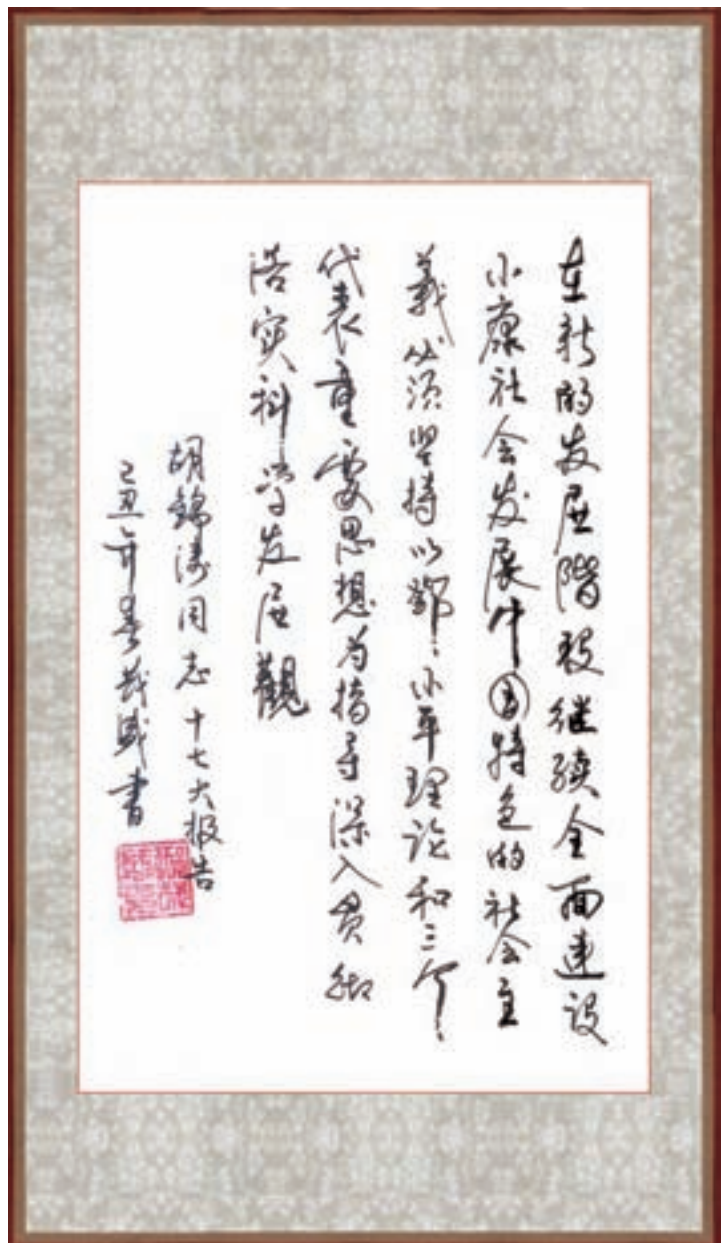 在新的发展階段继续全面建设
小康社会发展中国特色的社会主
義必须坚持以鄧小平理论和三个
代表重要思想为指导深入贯彻
落实科学发展觀
胡錦涛同志十七大报告
己丑年春茂盛書